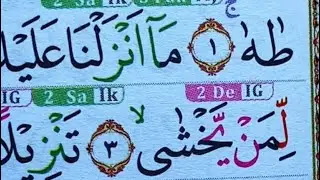 2 Sa Ik
طٰهٰ ۝١ مَآ اَنْزَلْنَا عَلَيْ
IG 2 Sa Ik 2 De IG
لِّمَنْ يَّخْشٰى ۙ ۝٣ تَنْزِيْلًا